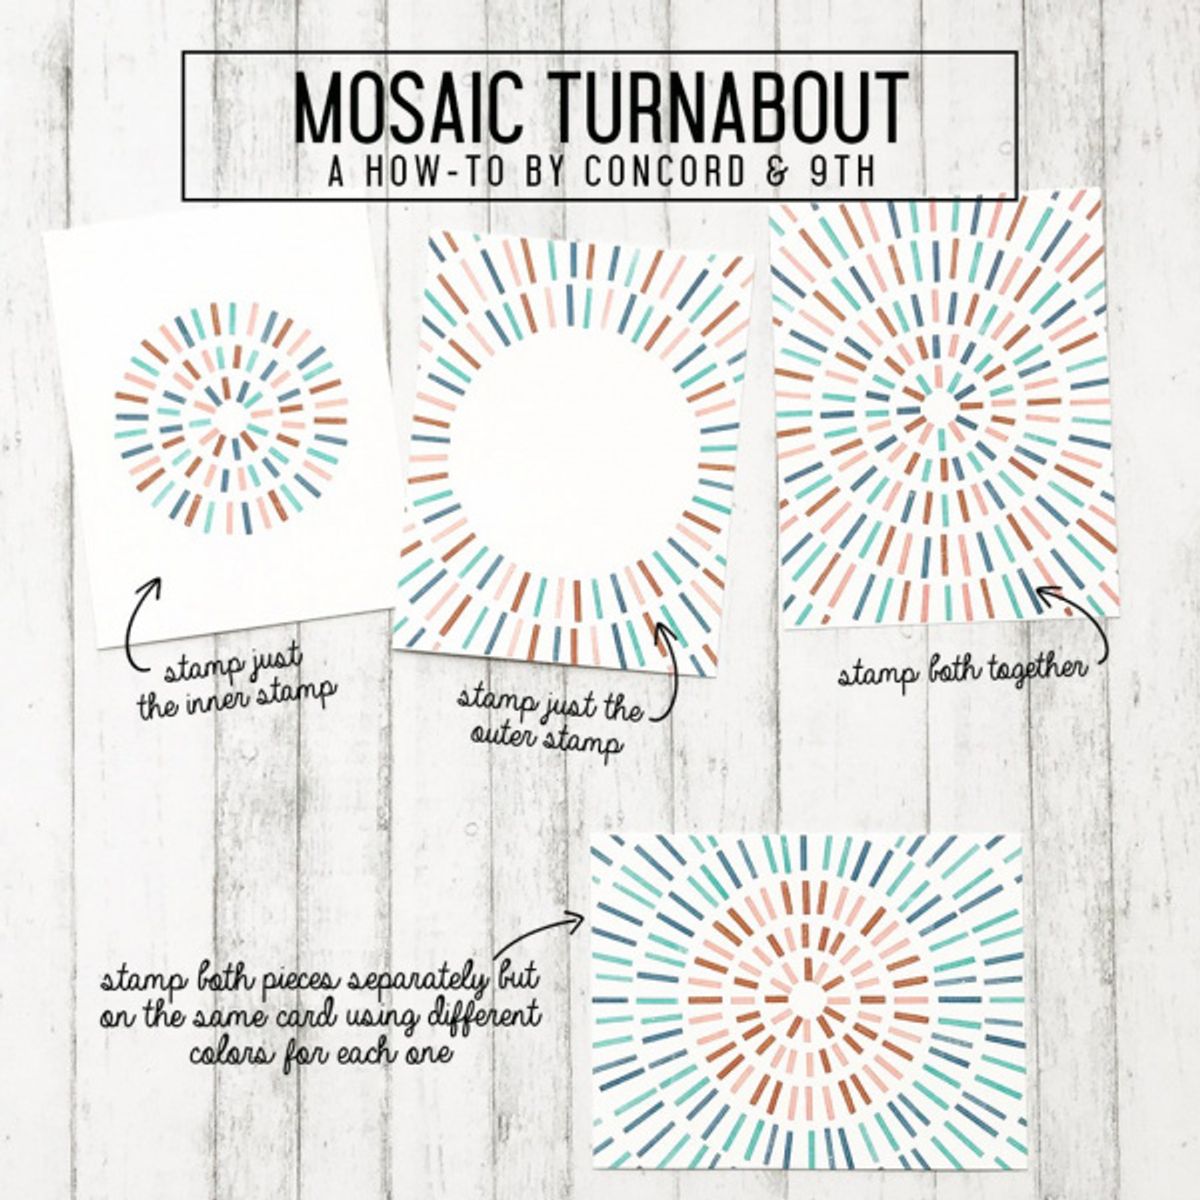 MOSAIC TURNABOUT
A HOW-TO BY CONCORD & 9TH
stamp just
the inner stamp
stamp just the
outer stamp
stamp both together
stamp both pieces separately but
on the same card using different
colors for each one